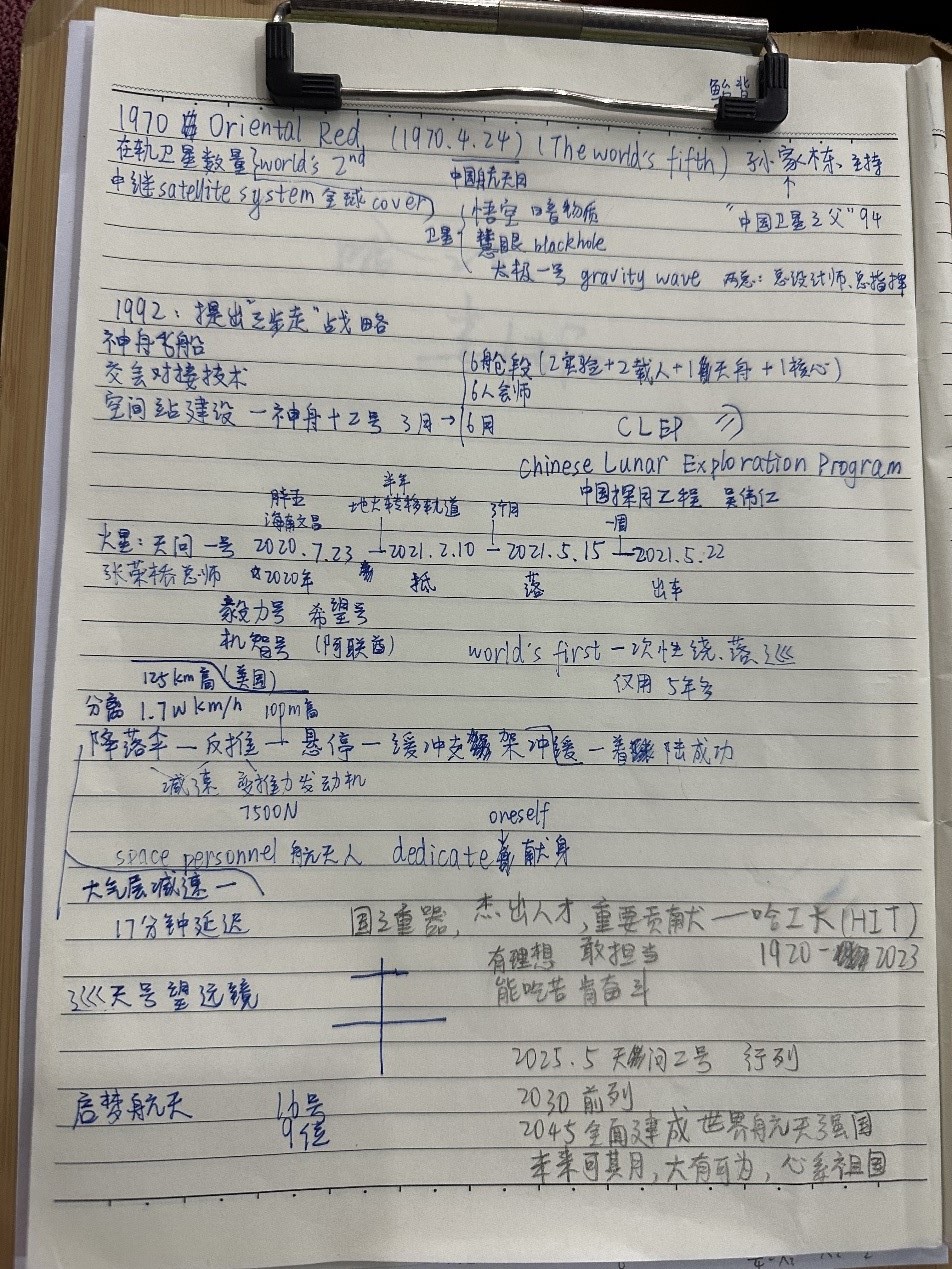 鲐背
1970 Oriental Red (1970.4.24) (The world's fifth) 孙家栋:主持
在轨卫星数量 world's 2nd 中国航天日 ↑
中继satellite system 全球cover "中国卫星之父" 94
卫星 悟空 暗物质
慧眼 blackhole
太极一号 gravity wave 两总:总设计师、总指挥
1992:提出"三步走"战略
神舟飞船
交会对接技术
空间站建设 — 神舟十二号 3月 → 6月
6舱段(2实验+2载人+1天舟+1核心)
6人会师
CLEP
Chinese Lunar Exploration Program
中国探月工程 吴伟仁
胖五 半年 3个月 一周
海南文昌 地火转移轨道
火星:天问一号 2020.7.23 — 2021.2.10 — 2021.5.15 — 2021.5.22
张荣桥总师 2020年 抵 落 出车
毅力号 希望号
机智号 (阿联酋)
(美国)
world's first 一次性绕、落、巡
仅用5年多
125km高
分离 1.7w km/h 100m高
降落伞 — 反推 — 悬停 — 缓冲支架冲缓 — 着陆成功
减速 变推力发动机
7500N
oneself
space personnel 航天人 dedicate 献身
大气层减速 —
17分钟延迟
国之重器,杰出人才,重要贡献 — 哈工大(HIT)
有理想 敢担当 1920 - 2023
能吃苦 肯奋斗
巡天号望远镜
2025.5 天问二号 行列
启梦航天 16号
9位
2030 前列
2045 全面建成世界航天强国
未来可其月,大有可为,心系祖国